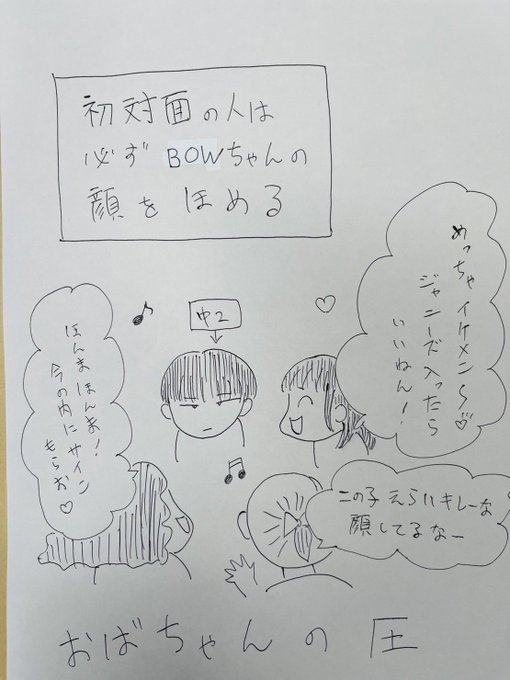 初対面の人は
必ずBOWちゃんの
顔をほめる
めっちゃイケメン〜♡
ジャニーズ入ったら
いいねん！
中2
ほんまほんま！
今の内にサイン
もらお♡
この子えらいキレーな
顔してるなー
おばちゃんの圧